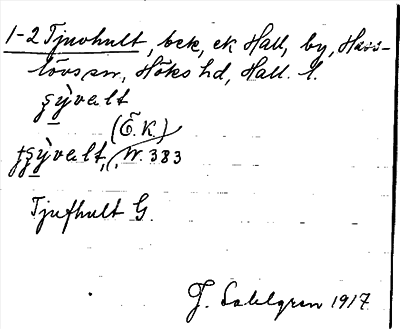 1-2 Tjuvhult, bek, ek Hall, by, Hass-
lövs sn, Höks hd, Hall. l.
şỳvalt
(E.K.)
tşỳvalt, W. 383
Tjufhult G.
J. Sahlgren 1917